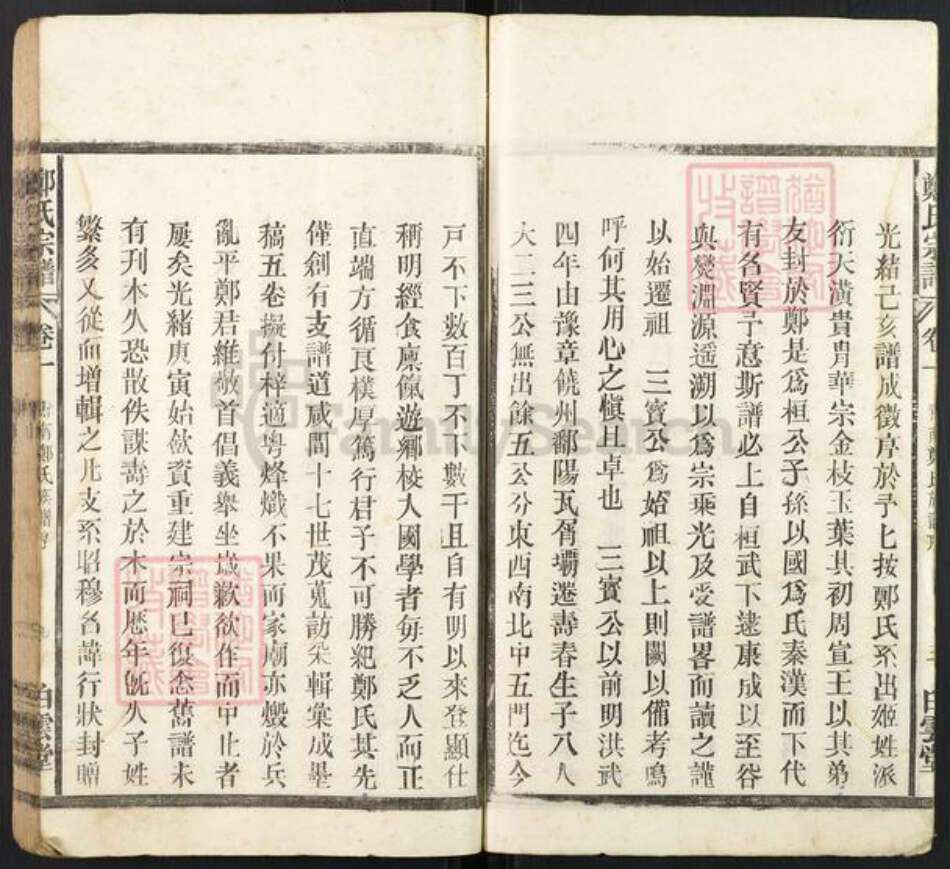 鄭氏宗譜 卷一
光緒己亥譜成徵序於予予按鄭氏系出姬姓派
衍天潢貴胄華宗金枝玉葉其初周宣王以其弟
友封於鄭是爲桓公子孫以國爲氏秦漢而下代
有名賢予意斯譜必上自桓武下逮康成以至谷
與燮淵源遥溯以爲宗乘光及受譜畧而讀之謹
以始遷祖 三寶公爲始祖以上則闕以俻考嗚
呼何其用心之愼且卓也 三寶公以前明洪武
四年由豫章饒州鄱陽瓦屑壩遷壽春生子八人
大二三公無出餘五公分東西南北中五門迄今
白雲堂
戸不下數百丁不下數千且自有明以來登顯仕
稱明經食廩餼遊鄉校入國學者毎不乏人而正
直端方循良樸厚篤行君子不可勝紀鄭氏其先
僅創有支譜道咸間十七世茂蒐訪采輯彙成墨
稿五卷擬付梓適粤烽熾不果而家廟亦燬於兵
亂平鄭君維敬首倡義舉坐歲歉欲作而中止者
屢矣光緒庚寅始斂資重建宗祠已復念舊譜未
有刋本久恐散佚謀壽之於木而歷年旣久子姓
繁多又從而增輯之凡支系昭穆名諱行狀封贈
鄭氏宗譜 卷一
白雲堂
FamilySearch